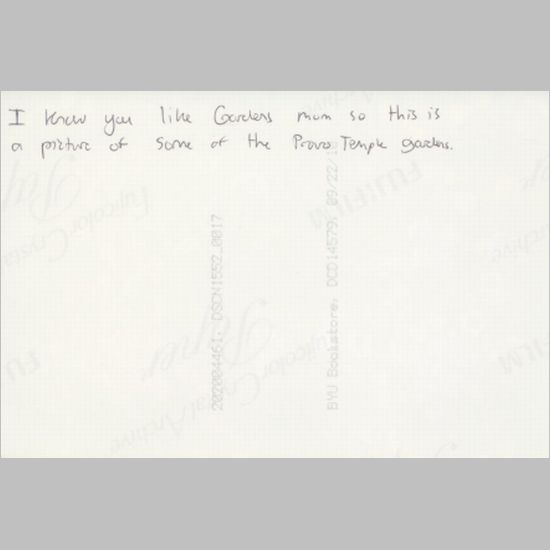 I know you like Gardens mom so this is
a picture of some of the Provo Temple gardens.
202004461, DSCN1552_0017
BYU Bookstore, DCD14579, 09/22/1
Fujicolor Crystal Archive
Paper
FUJIFILM